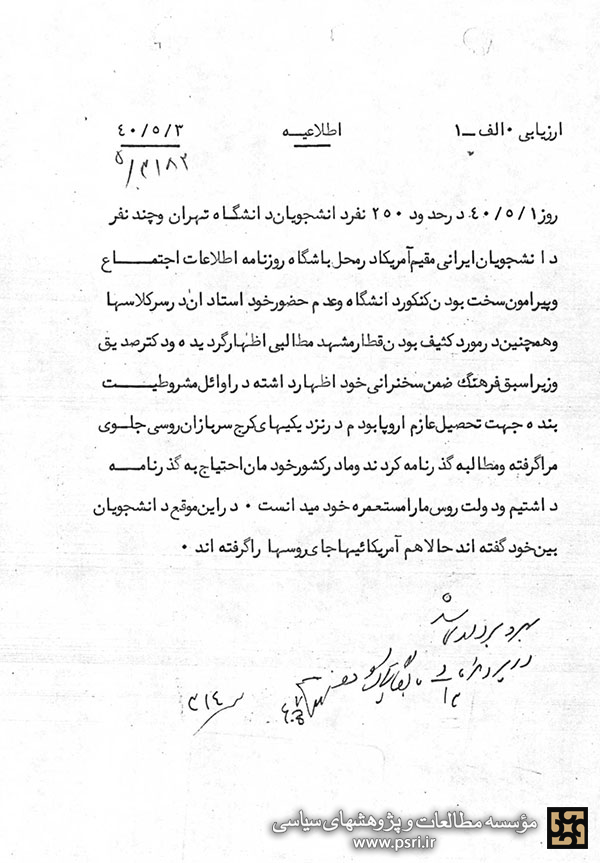 ارزیابی ۰ الف ــ ۱ اطلاعیـــه ۴۰/۵/۳
۵/۳۱۸۲
روز ۴۰/۵/۱ در حدود ۲۵۰ نفر دانشجویان دانشگاه تهران وچند نفر
دانشجویان ایرانی مقیم آمریکا در محل باشگاه روزنامه اطلاعات اجتماع
وپیرامون سخت بودن کنکور دانشگاه وعدم حضور خود استادان در سر کلاسها
وهمچنین در مورد کثیف بودن قطار مشهد مطالبی اظهار گردیده ودکتر صدیق
وزیر اسبق فرهنگ ضمن سخنرانی خود اظهار داشته در اوائل مشروطیـــت
بنده جهت تحصیل عازم اروپا بودم در نزدیکیهای کرج سربازان روسی جلوی
مرا گرفته ومطالبه گذرنامه کردند وما در کشور خودمان احتیاج به گذرنامـــه
داشتیم ودولت روس ما را مستعمره خود میدانست ۰ در این موقع دانشجویان
بین خود گفته اند حالا هم آمریکائیها جای روسها را گرفته اند ۰
در پرونده
۳۱۴
مؤسسه مطالعات و پژوهشهای سیاسی
www.psri.ir